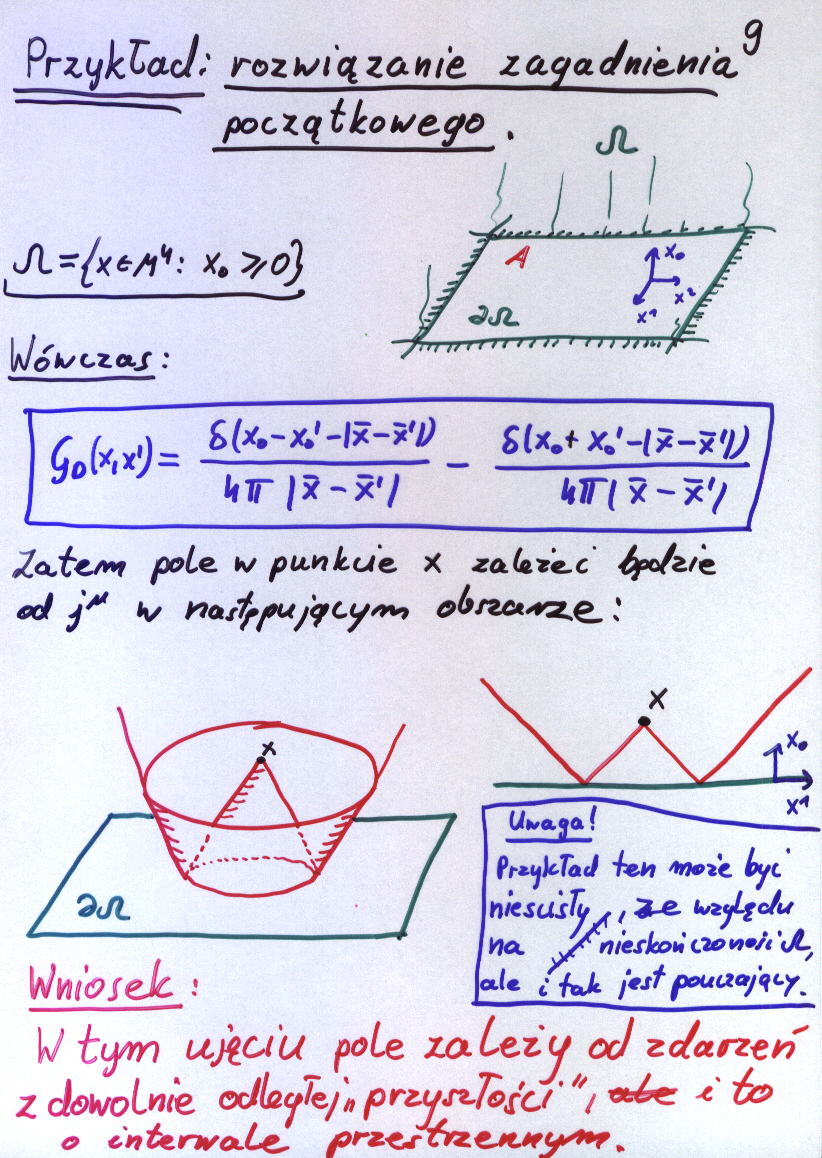 9
Przykład: rozwiązanie zagadnienia
początkowego.
Ω
Ω = {x ∈ M⁴: x₀ ⩾ 0}
A
x₀
x²
x¹
∂Ω
Wówczas:
G_D(x,x') = δ(x₀-x₀'-|x̄-x̄'|) / 4π |x̄-x̄'| - δ(x₀+x₀'-|x̄-x̄'|) / 4π |x̄-x̄'|
Zatem pole w punkcie x zależeć będzie
od j^μ w następującym obszarze:
x
∂Ω
x
x₀
x¹
Uwaga!
Przykład ten może być
nieścisły, ze względu
na nieskończoności Ω,
ale i tak jest pouczający.
Wniosek:
W tym ujęciu pole zależy od zdarzeń
z dowolnie odległej „przyszłości”, ale i to
o interwale przestrzennym.